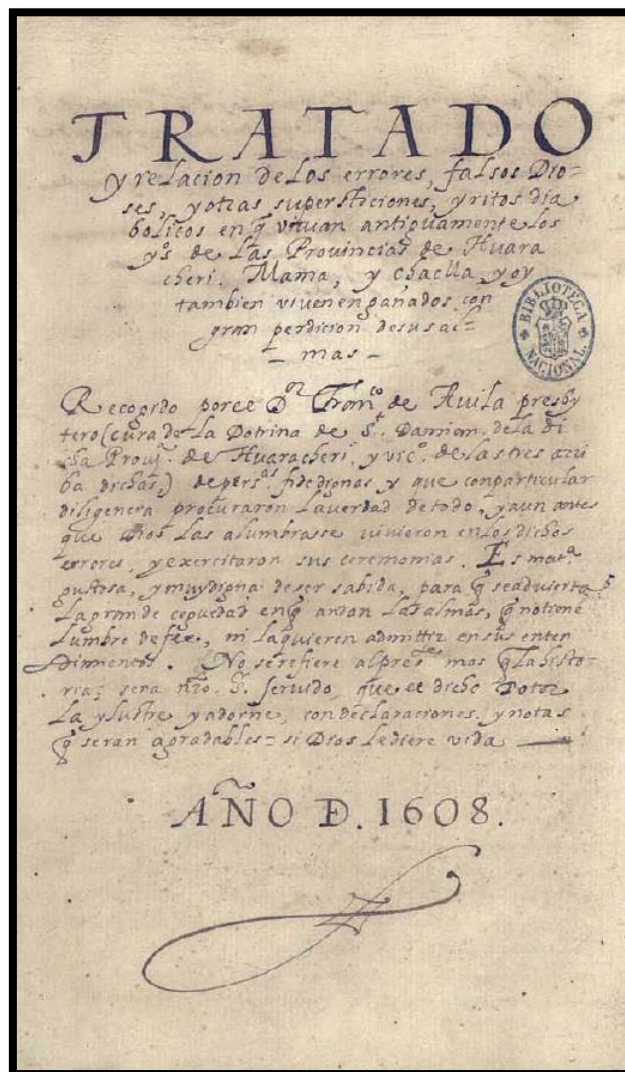 TRATADO
y relacion de los errores, falsos Dio-
ses, y otras supersticiones, y ritos dia
bolicos en q̃ viuian antiguamente los
yᵒˢ de las Prouincias de Huara
cheri. Mama, y chaclla, y oy
tambien viuen engañados con
gran perdicion de sus al-
- mas -
Recogido por el Dᵒʳ Franᶜᵒ de Auila presby
tero (cura de la Dotrina de S.ᵗ Damian de la di
cha Prouiᵃ. de Huaracheri, y vicᵒ. de las tres arri
ba dichas,) de persᵃˢ. fidedignas y que con particular
diligencia procuraron la verdad de todo, y aun antes
que Dios las alumbrasse viuieron en los dichos
errores, y exercitaron sus ceremonias. Es matᵃ
gustosa, y muy digna de ser sabida, para q̃ se aduierta
la grande ceguedad en q̃ andan las almas, q̃ no tienē
lumbre de fee, ni la quieren admittir en sus enten
dimientos. No se refiere al presᵗᵉ mas q̃ la histo-
ria; sera nr̃o. S.ʳ seruido, que el dicho Dotor
la ylustre y adorne, con declaraciones, y notas
q̃ seran agradables: si Dios le diere vida
AÑO D. 1608.
BIBLIOTECA
NACIONAL